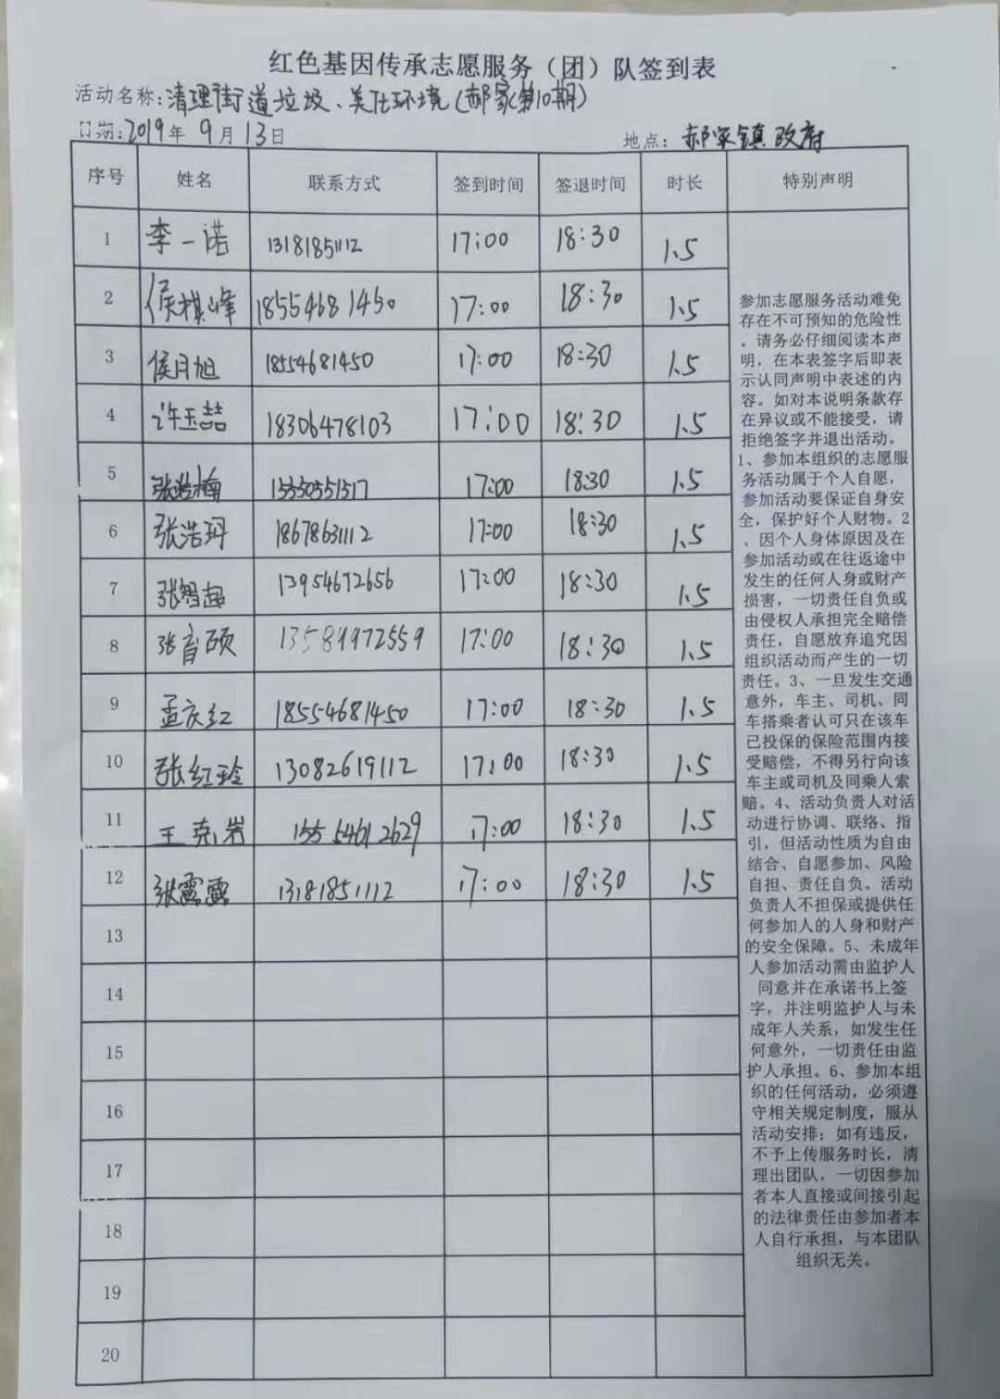 红色基因传承志愿服务（团）队签到表
活动名称:清理街道垃圾、美化环境(郝家第10期)
日期:2019年9月13日 地点:郝家镇政府
序号 姓名 联系方式 签到时间 签退时间 时长 特别声明
1 李一诺 13181851112 17:00 18:30 1.5
2 侯棋峰 18554681450 17:00 18:30 1.5
3 侯月旭 18554681450 17:00 18:30 1.5
4 许玉喆 18306478103 17:00 18:30 1.5
5 张浩楠 17:00 18:30 1.5
6 张浩玥 18678631112 17:00 18:30 1.5
7 张智超 13954672656 17:00 18:30 1.5
8 张育硕 13589972559 17:00 18:30 1.5
9 孟庆红 18554681450 17:00 18:30 1.5
10 张红玲 13082619112 17:00 18:30 1.5
11 王克岩 15554612629 17:00 18:30 1.5
12 张露露 13181851112 17:00 18:30 1.5
13
14
15
16
17
18
19
20
参加志愿服务活动难免
存在不可预知的危险性
，请务必仔细阅读本声
明，在本表签字后即表
示认同声明中表述的内
容。如对本说明条款存
在异议或不能接受，请
拒绝签字并退出活动。
1、参加本组织的志愿服
务活动属于个人自愿，
参加活动要保证自身安
全，保护好个人财物。2
、因个人身体原因及在
参加活动或在往返途中
发生的任何人身或财产
损害，一切责任自负或
由侵权人承担完全赔偿
责任，自愿放弃追究因
组织活动而产生的一切
责任。3、一旦发生交通
意外，车主、司机、同
车搭乘者认可只在该车
已投保的保险范围内接
受赔偿，不得另行向该
车主或司机及同乘人索
赔。4、活动负责人对活
动进行协调、联络、指
引，但活动性质为自由
结合、自愿参加、风险
自担、责任自负。活动
负责人不担保或提供任
何参加人的人身和财产
的安全保障。5、未成年
人参加活动需由监护人
同意并在承诺书上签
字，并注明监护人与未
成年人关系，如发生任
何意外，一切责任由监
护人承担。6、参加本组
织的任何活动，必须遵
守相关规定制度，服从
活动安排；如有违反，
不予上传服务时长，清
理出团队，一切因参加
者本人直接或间接引起
的法律责任由参加者本
人自行承担，与本团队
组织无关。